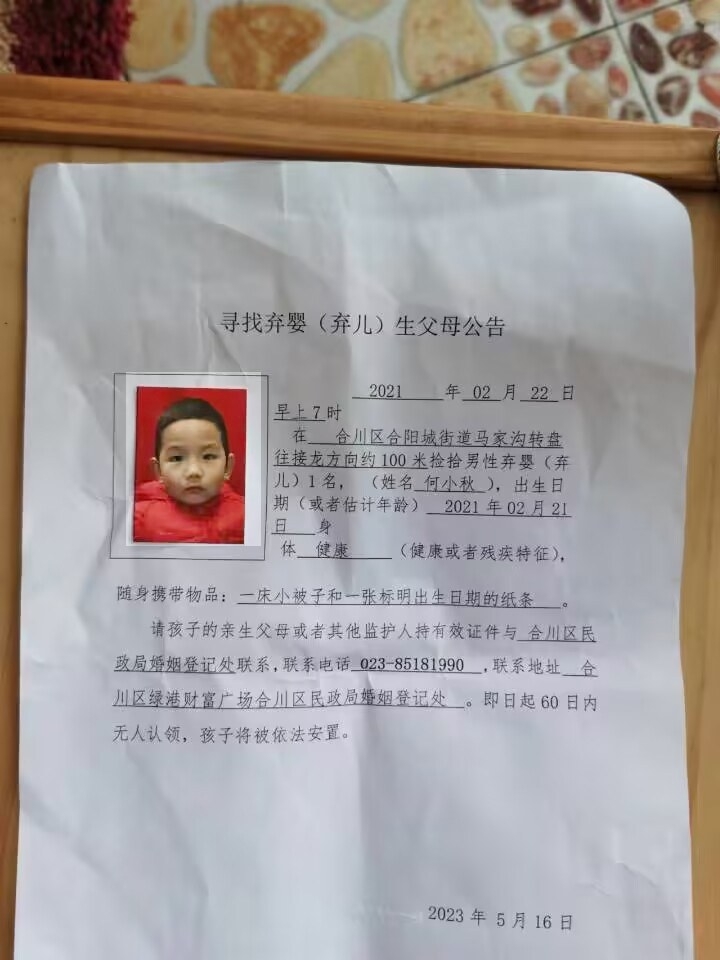 寻找弃婴（弃儿）生父母公告
2021 年 02 月 22 日
早上7时
在 合川区合阳城街道马家沟转盘
往接龙方向约100米捡拾男性弃婴（弃
儿）1名，（姓名 何小秋 ），出生日
期（或者估计年龄） 2021年02月21
日 身
体 健康 （健康或者残疾特征），
随身携带物品：一床小被子和一张标明出生日期的纸条 。
请孩子的亲生父母或者其他监护人持有效证件与 合川区民
政局婚姻登记处联系，联系电话 023-85181990 ，联系地址 合
川区绿港财富广场合川区民政局婚姻登记处 。即日起60日内
无人认领，孩子将被依法安置。
2023 年 5 月 16 日